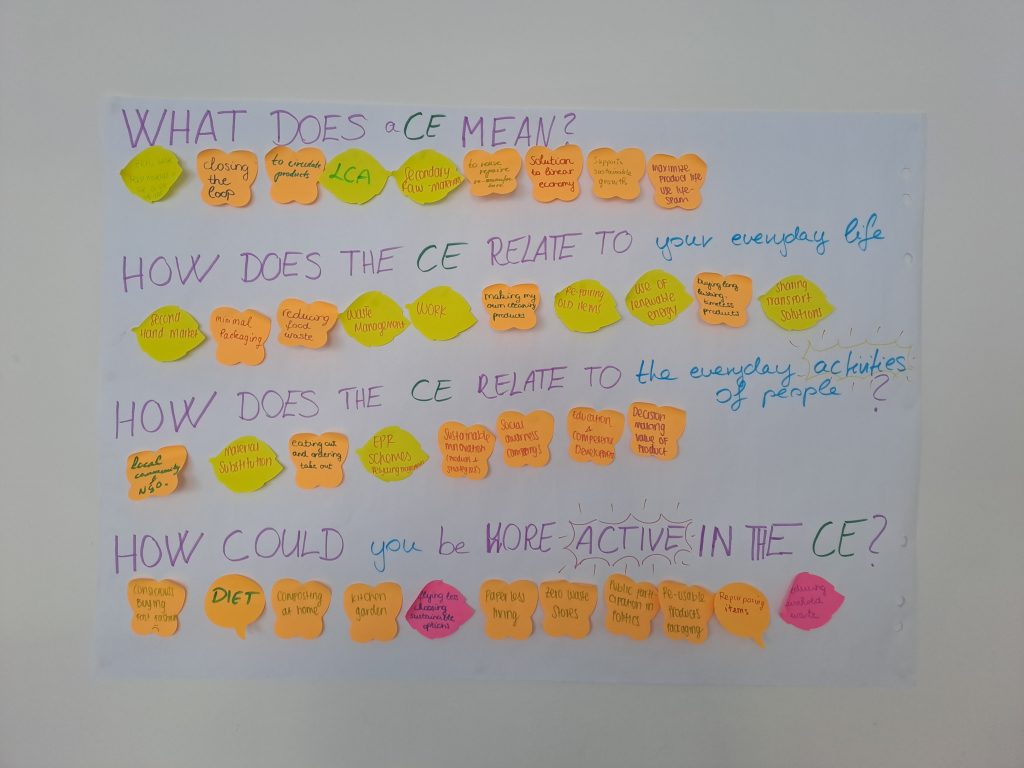 WHAT DOES a CE MEAN?
closing
the
loop
to circulate
products
LCA
Secondary
to reuse
repaire
Solution
to linear
economy
Supports
sustainable
growth
MAXIMIZE
PRODUCT life
life-
HOW DOES THE CE RELATE TO your everyday life
Second
Hand market
minimal
Packaging
reducing
food
waste
Waste
Management
WORK
making my
own cleaning
products
Re-pairing
OLD items
USE OF
renewable
energy
buying long
lasting
timeless
products
sharing
transport
solutions
HOW DOES THE CE RELATE TO the everyday activities
of people ?
local
community
NGO-
MATERIAL
SUBSTITUTION
eating out
and ordering
take out
EPR
SCHEMES
Sustainable
innovation
Social
awareness
company's
Education
&
Competence
Development
Decision
making
value of
Product
HOW COULD you be MORE ACTIVE IN THE CE?
CONSCIOUS
BUYING
fast fashion
DIET
Composting
at home
kitchen
garden
flying less
choosing
sustainable
options
Paper less
living
Zero waste
Stores
Public parti
cipation in
Politics
Re-usable
Products
Packaging
Repurposing
items
waste